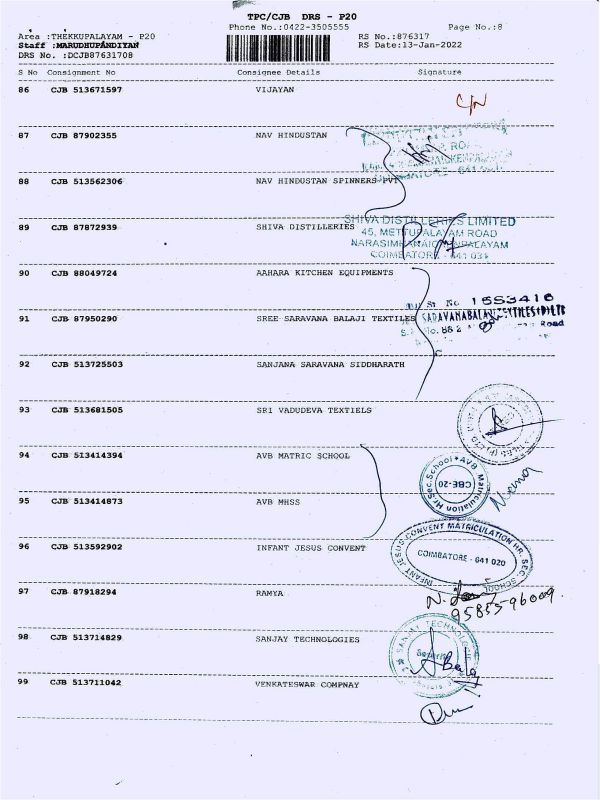 TPC/CJB DRS - P20
Phone No.:0422-3505555 Page No.:8
Area :THEKKUPALAYAM - P20 RS No.:876317
Staff :MARUDHUPANDIYAN RS Date:13-Jan-2022
DRS No. :DCJB87631708
S No Consignment No Consignee Details Signature
86 CJB 513671597 VIJAYAN
C/N
87 CJB 87902355 NAV HINDUSTAN
88 CJB 513562306 NAV HINDUSTAN SPINNERS PVT
89 CJB 87872939 SHIVA DISTILLERIES
SHIVA DISTILLERIES LIMITED
45, METTUPALAYAM ROAD
COIMBATORE - 641 031
90 CJB 88049724 AAHARA KITCHEN EQUIPMENTS
91 CJB 87950290 SREE SARAVANA BALAJI TEXTILES
1553416
Road
92 CJB 513725503 SANJANA SARAVANA SIDDHARATH
93 CJB 513681505 SRI VADUDEVA TEXTIELS
94 CJB 513414394 AVB MATRIC SCHOOL
AVB Matriculation Hr.Sec.School
CBE-20
95 CJB 513414873 AVB MHSS
96 CJB 513592902 INFANT JESUS CONVENT
INFANT JESUS CONVENT MATRICULATION HR. SEC. SCHOOL
COIMBATORE - 641 020
97 CJB 87918294 RAMYA
95855-96009.
98 CJB 513714829 SANJAY TECHNOLOGIES
SANJAY TECHNOLOGIES
99 CJB 513711042 VENKATESWAR COMPNAY